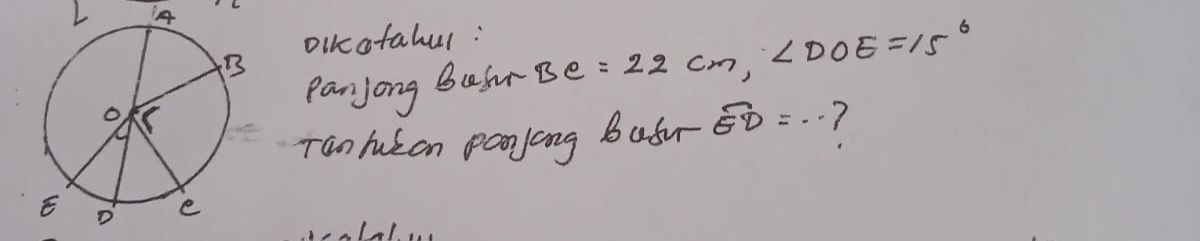 A
B
O
E
D
C
Dikatahui :
Panjang busur BC = 22 cm, ∠DOE = 15°
Tantukan panjang busur ED = ...?